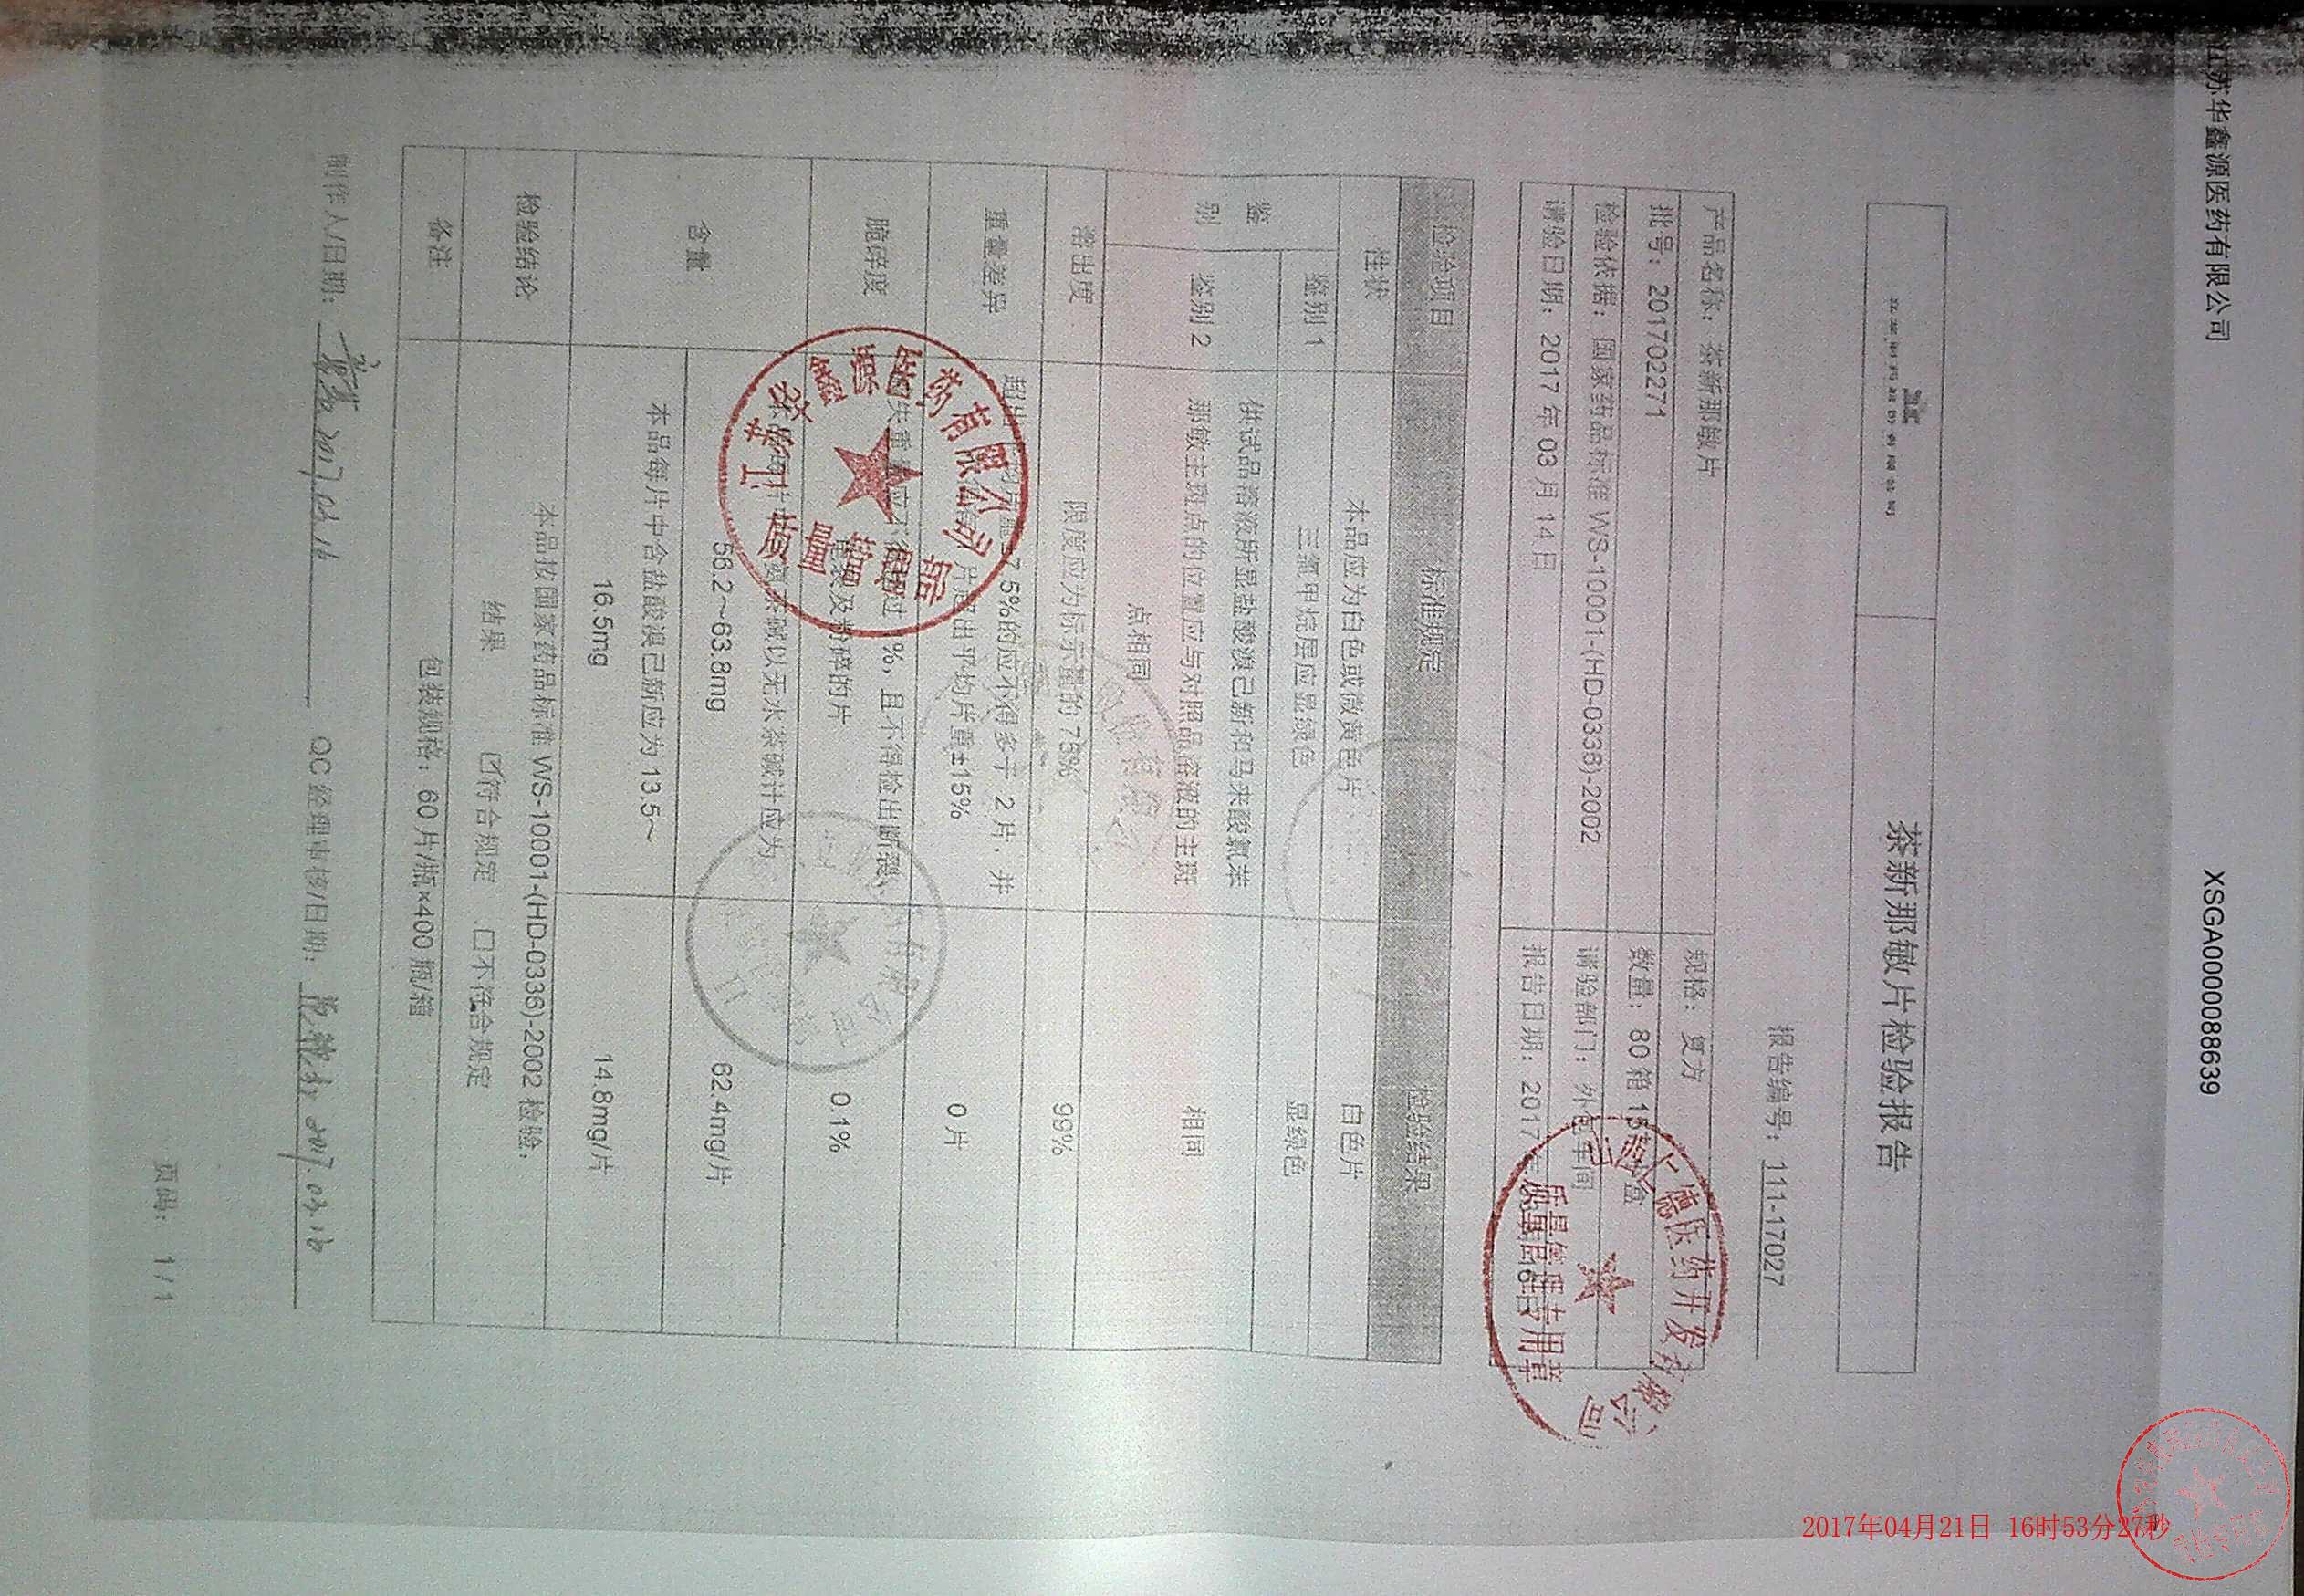 江苏华鑫源医药有限公司 XSGA0000088639
茶新那敏片检验报告
报告编号：111-17027
产品名称：茶新那敏片 规格：复方
批号：201702271 数量：80箱 15
检验依据：国家药品标准 WS-10001-(HD-0336)-2002 请验部门：外包车间
请验日期：2017年03月14日 报告日期：2017年
检验项目 标准规定 检验结果
性状 本品应为白色或微黄色片 白色片
鉴别 鉴别1 三氯甲烷层应显绿色 显绿色
鉴别2 供试品溶液所显盐酸溴己新和马来酸氯苯
那敏主斑点的位置应与对照品溶液的主斑
点相同 相同
溶出度 限度应为标示量的75% 99%
重量差异 超出 7.5%的应不得多于2片，并
片超出平均片重±15% 0片
脆碎度 失重 应不得超过1%，且不得检出断裂、
龟裂及粉碎的片 0.1%
含量 本品每片中 茶碱以无水茶碱计应为
56.2～63.8mg 62.4mg/片
本品每片中含盐酸溴己新应为13.5～
16.5mg 14.8mg/片
检验结论 本品按国家药品标准 WS-10001-(HD-0336)-2002 检验，
结果 ☑符合规定 口不符合规定
备注 包装规格：60片/瓶×400瓶/箱
制作人/日期： 2017.03.16 QC经理审核/日期： 2017.03.16
页码：1/1
江苏华鑫源医药有限公司
质量管理部
德医药开发有限公司
质量管理专用章
2017年04月21日 16时53分27秒